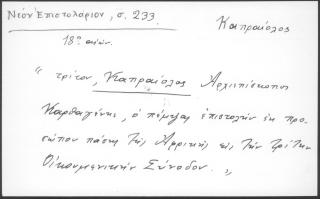 Νέον Ἐπιστολάριον, σ. 233.
Καπραίολος
18ος αἰών.
" τρίτον, Καπραίολος Ἀρχιεπίσκοπος
Καρθαγένης, ὁ πέμψας ἐπιστολὴν ἐκ προ-
σώπου πάσης τῆς Ἀφρικῆς εἰς τὴν Τρίτην
Οἰκουμενικὴν Σύνοδον. "